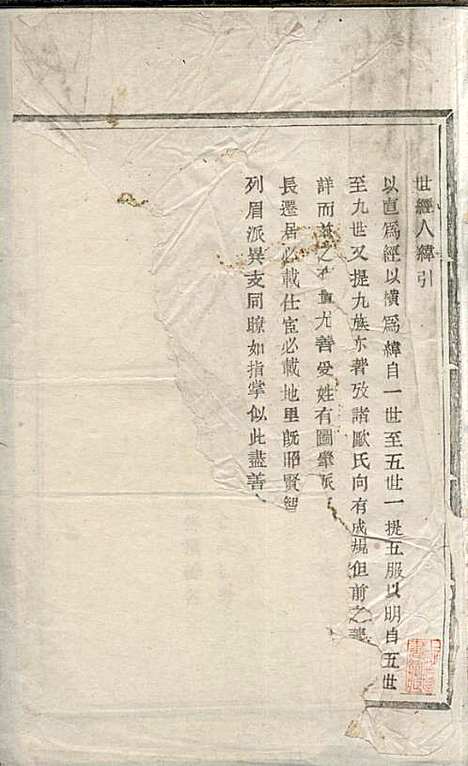 世經人緯引
以直爲經以橫爲緯自一世至五世一提五服以明自五世
至九世又提九族亦著攷諸歐氏向有成規但前之譜
詳而尤善爰姓有圖肇派
長遷居必載仕宦必載地里旣昭賢智
列眉派異支同瞭如指掌似此盡善